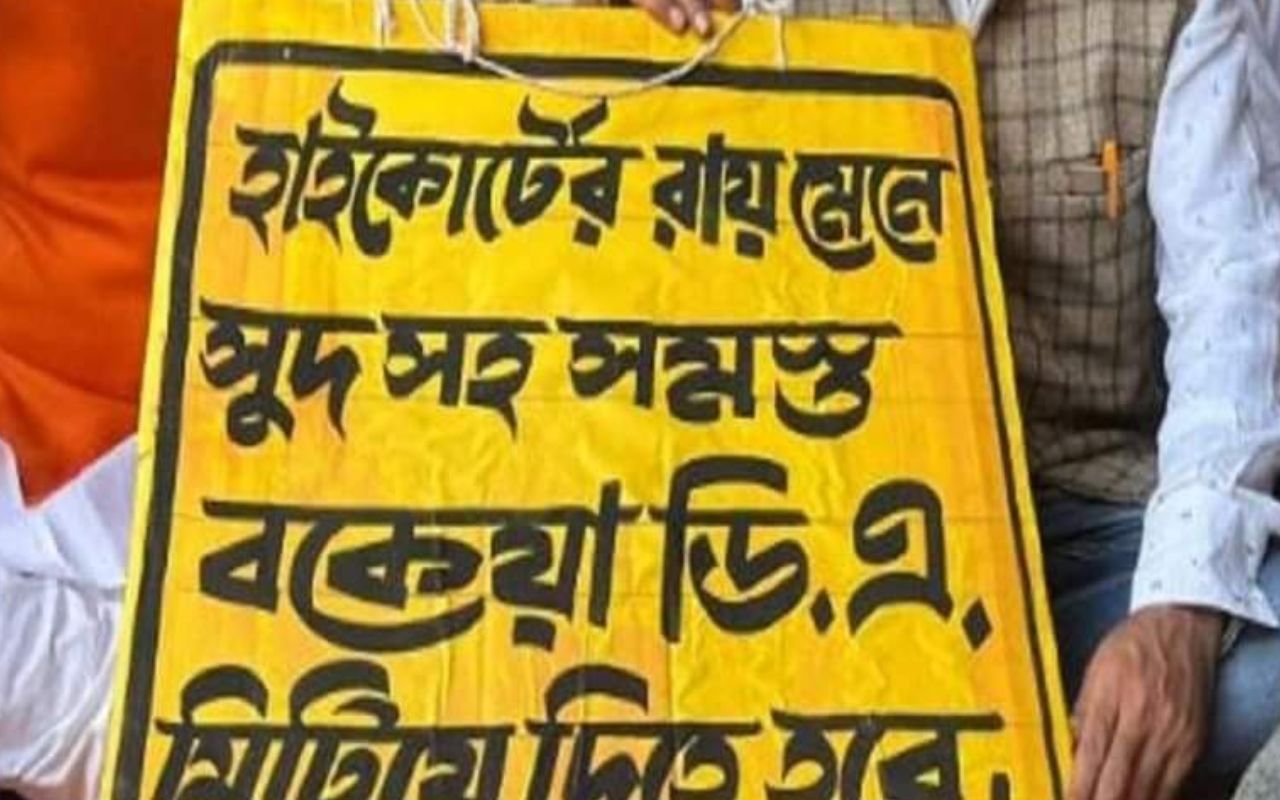 হাইকোর্টের রায় মেনে
সুদ সহ সমস্ত
বকেয়া ডি.এ.
মিটিয়ে দিতে হবে.